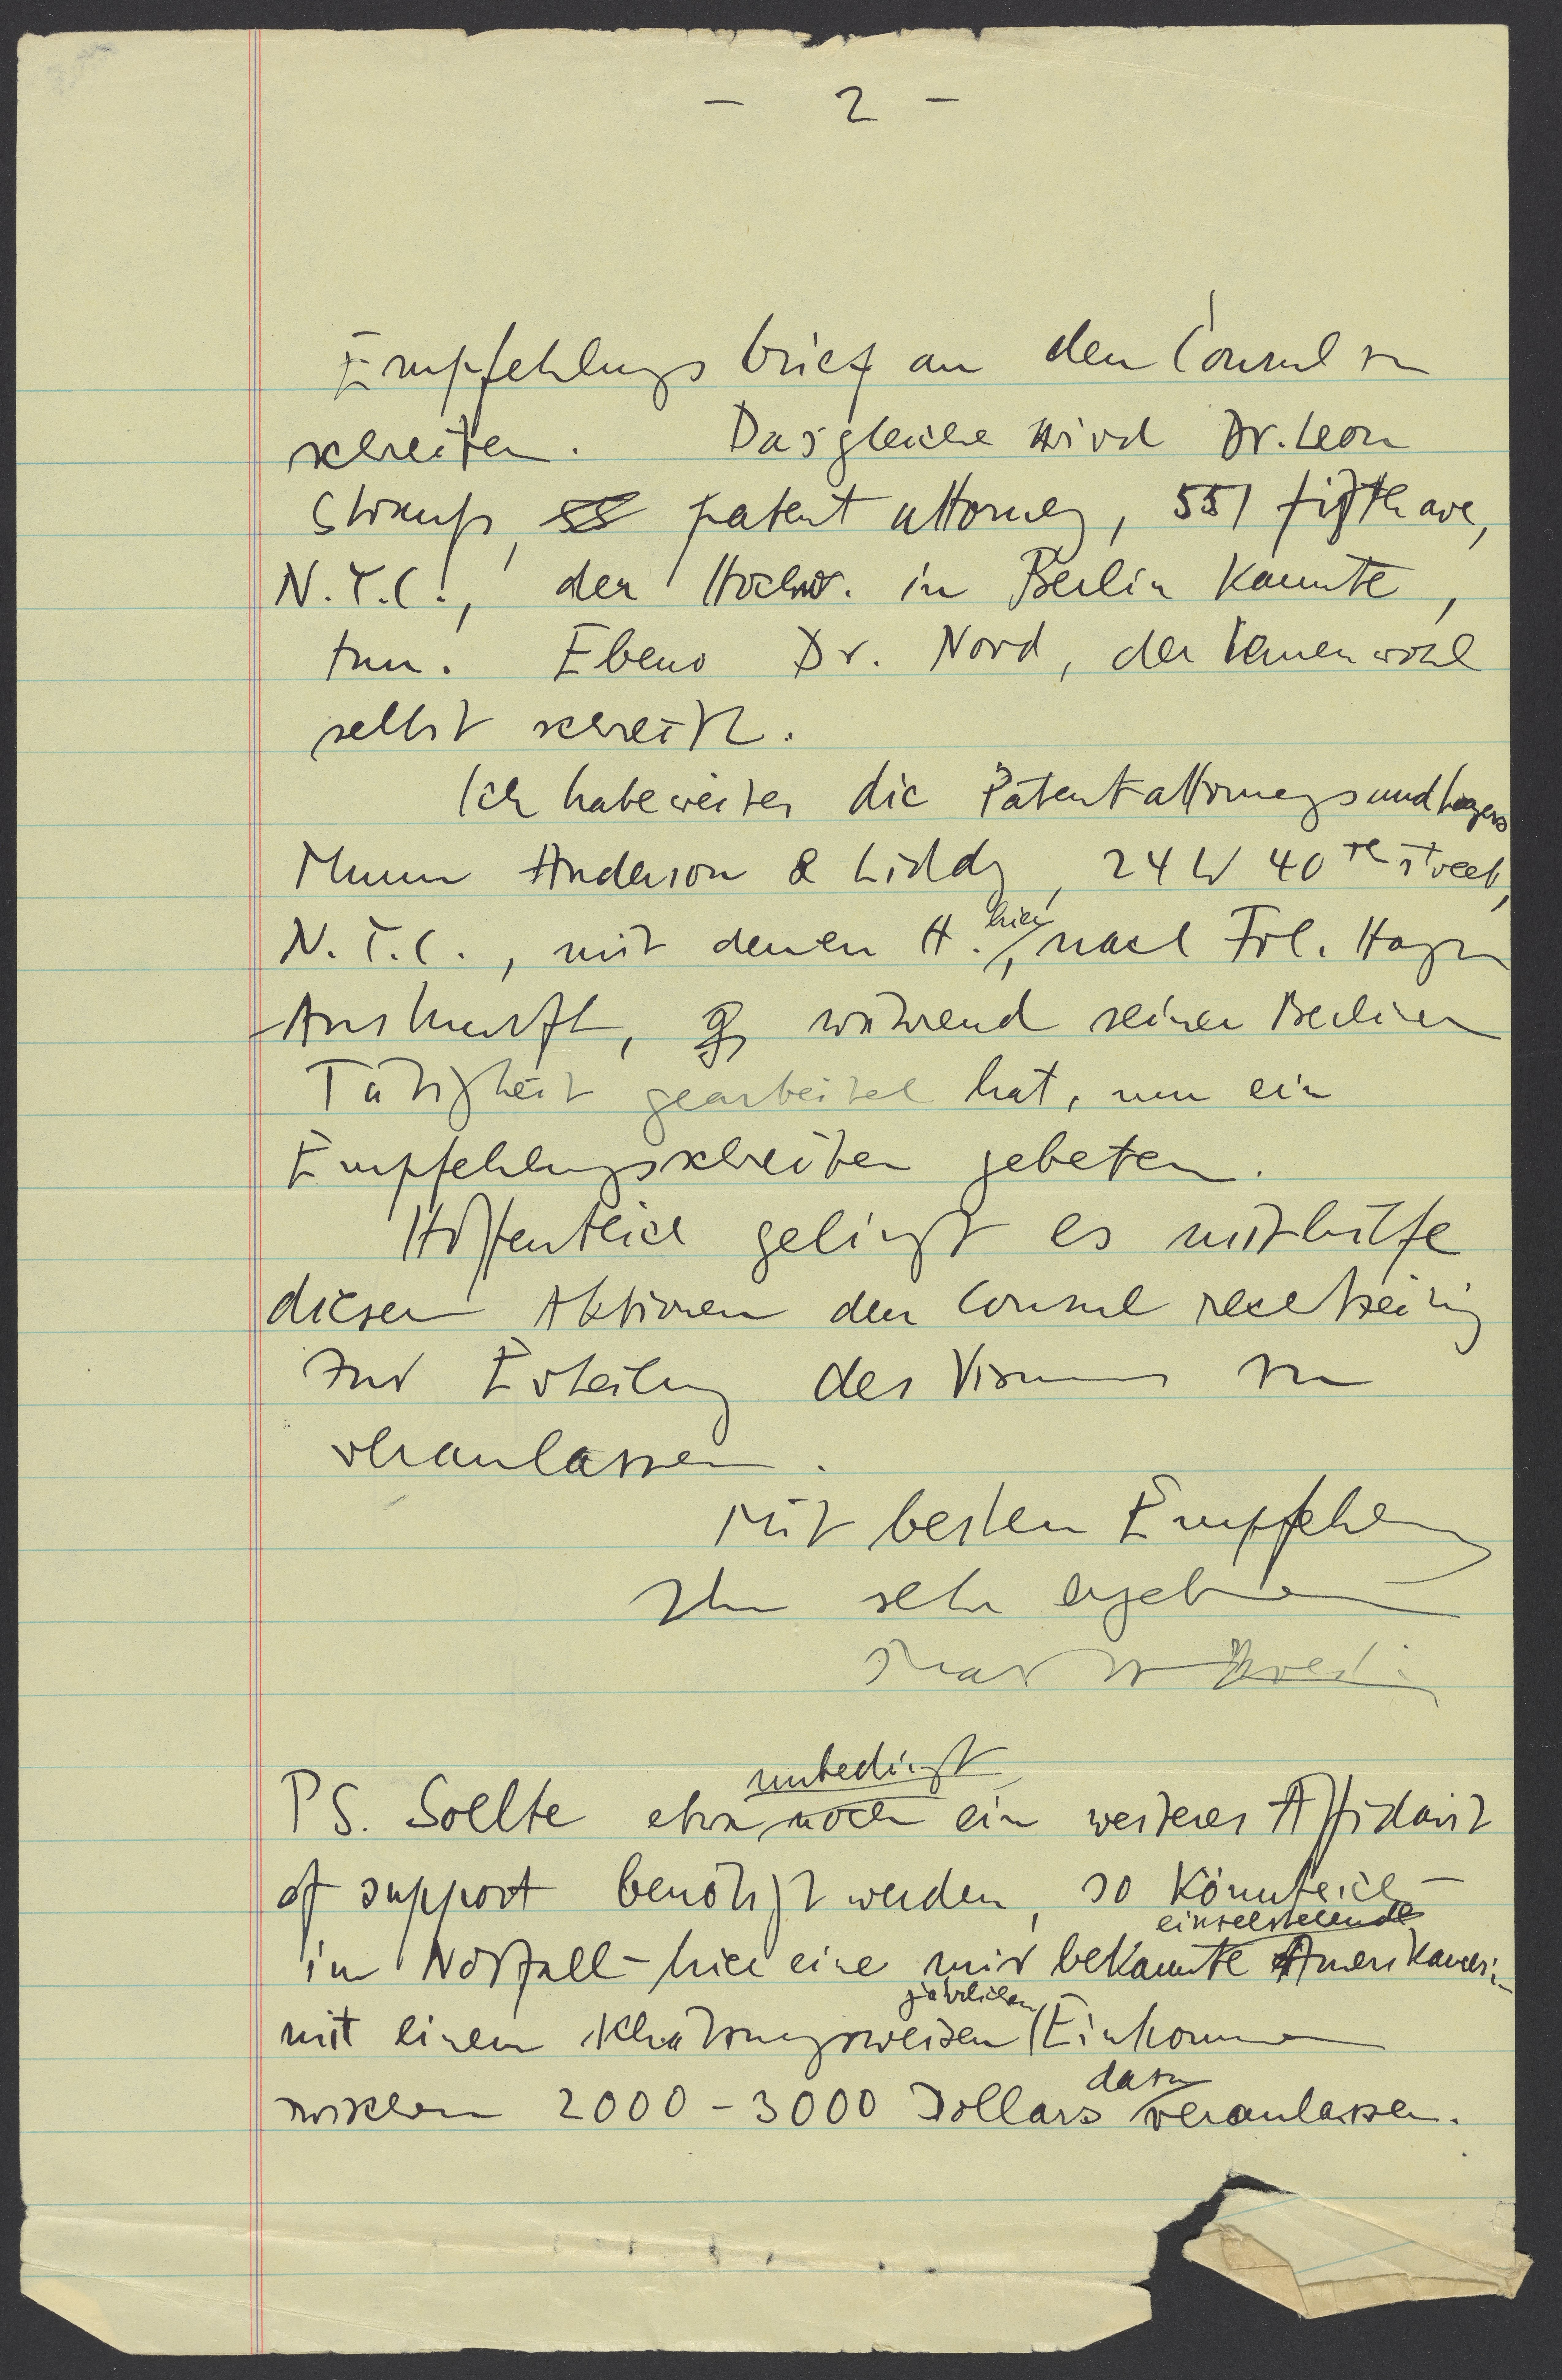 - 2 -
Empfehlungsbrief an den Consul zu
schreiben. Dasgleiche wird Dr. Leon
Strauss, patent attorney, 551 fifth ave,
N.Y.C., der Hochw. in Berlin kannte,
tun. Ebenso Dr. Nord, der Ihnen wohl
selbst schreibt.
Ich habe weiter die Patentattorneys und lawyers
Munn Anderson & Liddy, 24 W 40th street,
N.Y.C., mit denen H. hier, nach Frl. Hagen
Auskunft, während seiner Berliner
Tätigkeit gearbeitet hat, um ein
Empfehlungsschreiben gebeten.
Hoffentlich gelingt es mithilfe
dieser Aktionen den Consul rechtzeitig
zur Erteilung des Visums zu
veranlassen.
Mit besten Empfehlungen
Ihr sehr ergebener
PS. Sollte etwa unbedingt noch ein weiteres Affidavit
of support benötigt werden, so könnte ich -
im Notfall - hier eine mir bekannte einzelstehende Amerikanerin
mit einem schätzungsweisen jährlichen Einkommen
zwischen 2000 - 3000 Dollars dazu veranlassen.